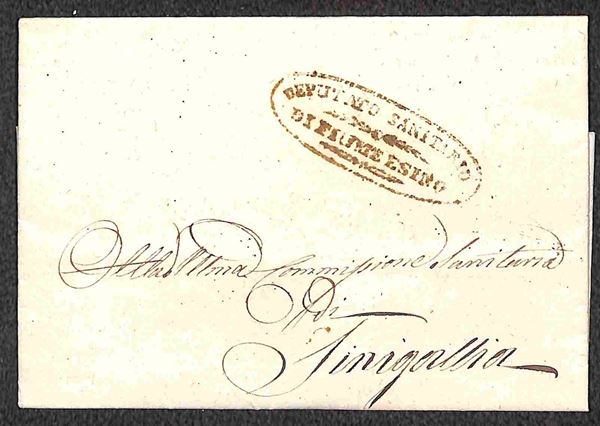 DEPUTATO SANITARIO
DI FIUME ESINO
Alla Illma Commissione Sanitaria
Di
Sinigallia